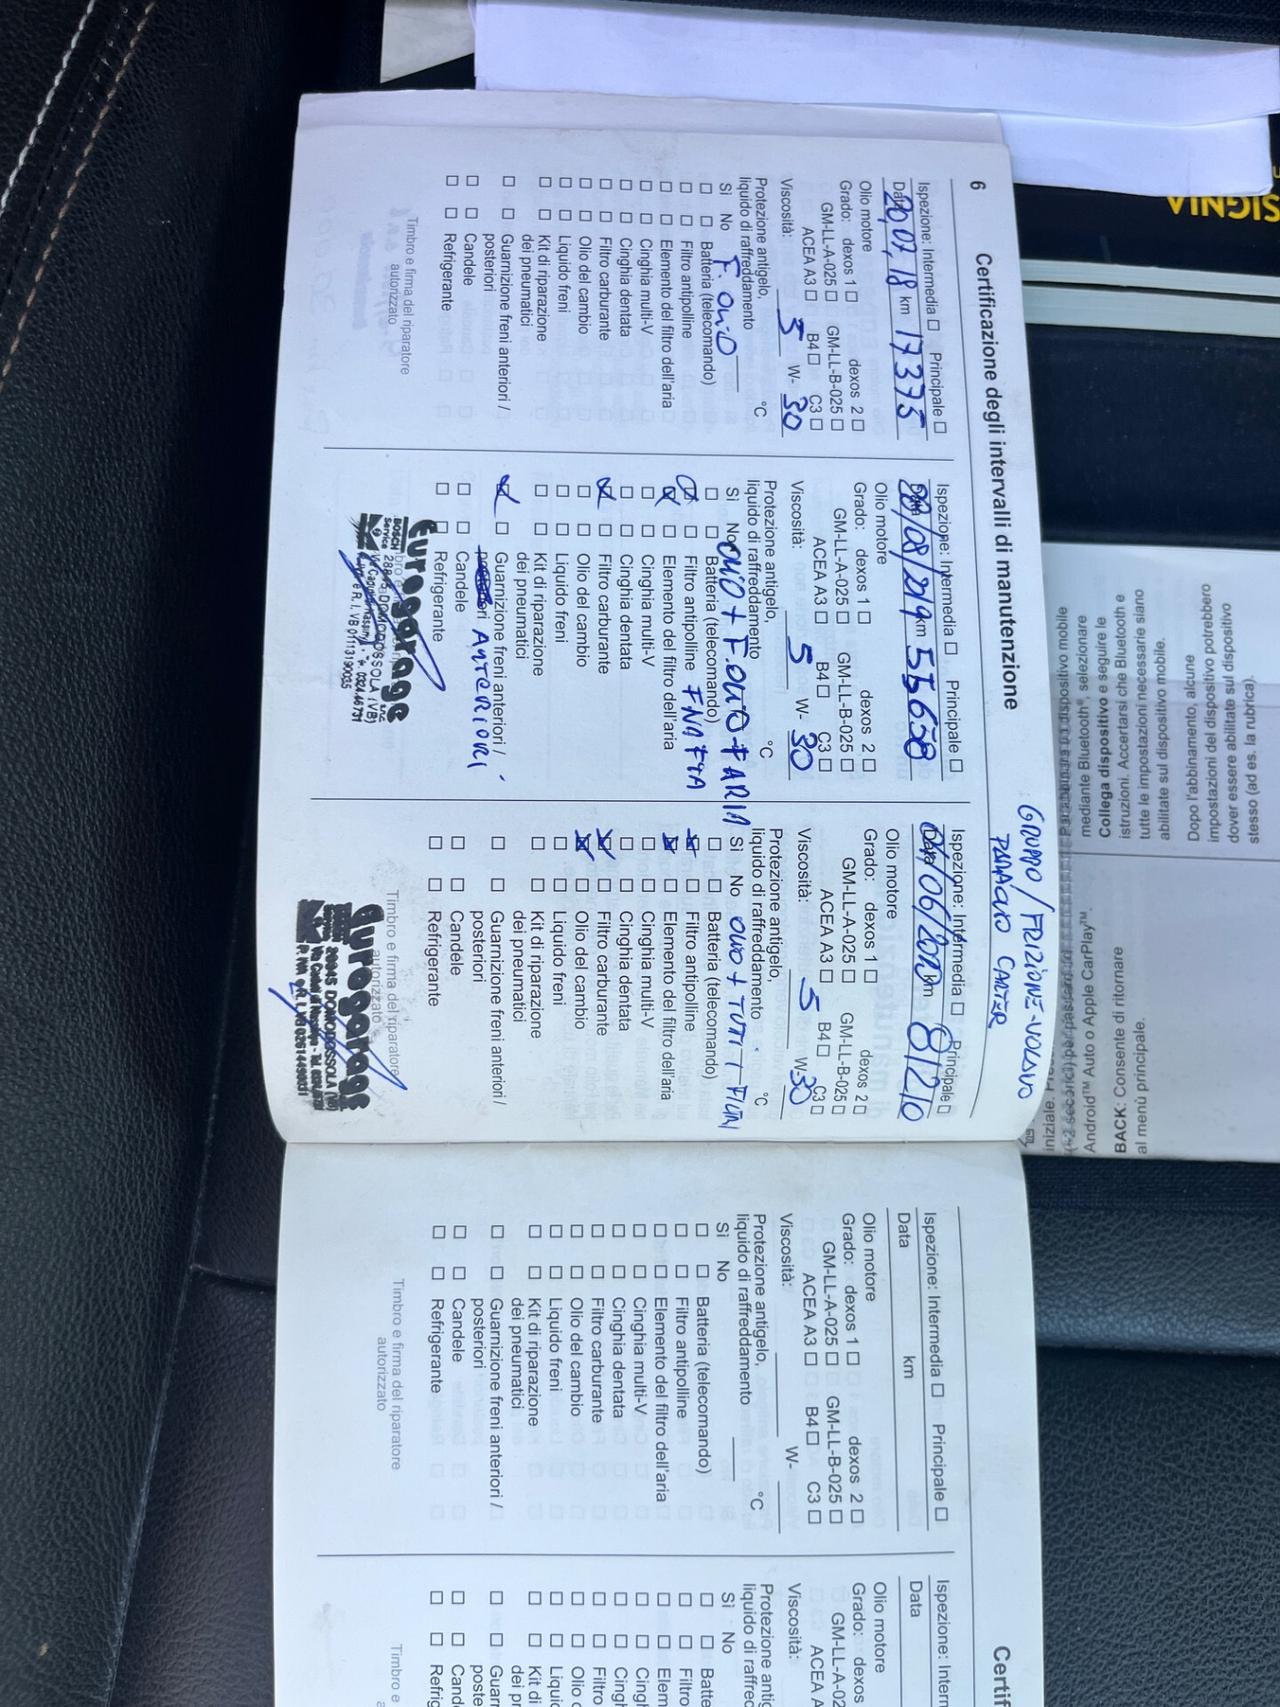 SIGNIA
6
Certificazione degli intervalli di manutenzione
Ispezione: Intermedia ☐ Principale ☐
Data 20,07,18 km 17375
Olio motore
Grado: dexos 1 ☐ dexos 2 ☐
GM-LL-A-025 ☐ GM-LL-B-025 ☐
ACEA A3 ☐ B4 ☐ C3 ☐
Viscosità: 5 W- 30
Protezione antigelo,
liquido di raffreddamento °C
Sì No F. OLIO
☐ ☐ Batteria (telecomando)
☐ ☐ Filtro antipolline
☐ ☐ Elemento del filtro dell'aria
☐ ☐ Cinghia multi-V
☐ ☐ Cinghia dentata
☐ ☐ Filtro carburante
☐ ☐ Olio del cambio
☐ ☐ Liquido freni
☐ ☐ Kit di riparazione
dei pneumatici
☐ ☐ Guarnizione freni anteriori /
posteriori
☐ ☐ Candele
☐ ☐ Refrigerante
Timbro e firma del riparatore
autorizzato
Ispezione: Intermedia ☐ Principale ☐
08/08/2019 km 55658
Olio motore
Grado: dexos 1 ☐ dexos 2 ☐
GM-LL-A-025 ☐ GM-LL-B-025 ☐
ACEA A3 ☐ B4 ☐ C3 ☐
Viscosità: 5 W- 30
Protezione antigelo,
liquido di raffreddamento °C
Sì No OLIO + F. OLIO + F ARIA
☐ ☐ Batteria (telecomando)
☒ ☐ Filtro antipolline F NAFTA
☒ ☐ Elemento del filtro dell'aria
☐ ☐ Cinghia multi-V
☐ ☐ Cinghia dentata
☒ ☐ Filtro carburante
☐ ☐ Olio del cambio
☐ ☐ Liquido freni
☐ ☐ Kit di riparazione
dei pneumatici
☒ ☐ Guarnizione freni anteriori /
ANTERIORI
☐ ☐ Candele
☐ ☐ Refrigerante
Eurogarage
BOSCH
Service 28845 DOMODOSSOLA (VB)
GRUPPO / FRIZIONE - VOLANO
CARTER
Ispezione: Intermedia ☐ Principale ☐
km 81210
Olio motore
Grado: dexos 1 ☐ dexos 2 ☐
GM-LL-A-025 ☐ GM-LL-B-025 ☐
ACEA A3 ☐ B4 ☐ C3 ☐
Viscosità: 5 W- 30
Protezione antigelo,
liquido di raffreddamento °C
Sì No OLIO + TUTTI I FILTRI
☐ ☐ Batteria (telecomando)
☒ ☐ Filtro antipolline
☒ ☐ Elemento del filtro dell'aria
☐ ☐ Cinghia multi-V
☐ ☐ Cinghia dentata
☒ ☐ Filtro carburante
☒ ☐ Olio del cambio
☐ ☐ Liquido freni
☐ ☐ Kit di riparazione
dei pneumatici
☐ ☐ Guarnizione freni anteriori /
posteriori
☐ ☐ Candele
☐ ☐ Refrigerante
Timbro e firma del riparatore
autorizzato
Eurogarage
28845 DOMODOSSOLA (VB)
Ispezione: Intermedia ☐ Principale ☐
Data km
Olio motore
Grado: dexos 1 ☐ dexos 2 ☐
GM-LL-A-025 ☐ GM-LL-B-025 ☐
ACEA A3 ☐ B4 ☐ C3 ☐
Viscosità: W-
Protezione antigelo,
liquido di raffreddamento °C
Sì No
☐ ☐ Batteria (telecomando)
☐ ☐ Filtro antipolline
☐ ☐ Elemento del filtro dell'aria
☐ ☐ Cinghia multi-V
☐ ☐ Cinghia dentata
☐ ☐ Filtro carburante
☐ ☐ Olio del cambio
☐ ☐ Liquido freni
☐ ☐ Kit di riparazione
dei pneumatici
☐ ☐ Guarnizione freni anteriori /
posteriori
☐ ☐ Candele
☐ ☐ Refrigerante
Timbro e firma del riparatore
autorizzato
Certif
Ispezione: Interm
Data
Olio motore
Grado: dexos
GM-LL-A-02
ACEA A
Viscosità:
Protezione antig
liquido di raffred
Sì No
☐ ☐ Batte
☐ ☐ Filtro
☐ ☐ Elem
☐ ☐ Cing
☐ ☐ Cingh
☐ ☐ Filtro
☐ ☐ Olio d
☐ ☐ Liquid
☐ ☐ Kit di
dei pn
☐ ☐ Guarn
poste
☐ ☐ Cande
☐ ☐ Refrig
Timbro e
stesso (ad es. la rubrica).
dover essere abilitate sul dispositivo
impostazioni del dispositivo potrebbero
Dopo l'abbinamento, alcune
abilitate sul dispositivo mobile.
tutte le impostazioni necessarie siano
istruzioni. Accertarsi che Bluetooth e
Collega dispositivo e seguire le
mediante Bluetooth®, selezionare
Android™ Auto o Apple CarPlay™.
BACK: Consente di ritornare
al menù principale.